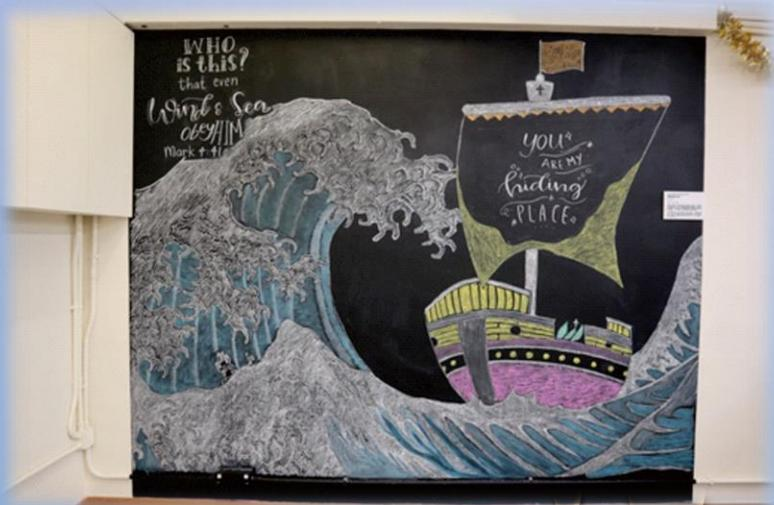 WHO
is this?
that even
Wind & Sea
obey HIM
Mark 4:41
YOU
ARE MY
hiding
PLACE